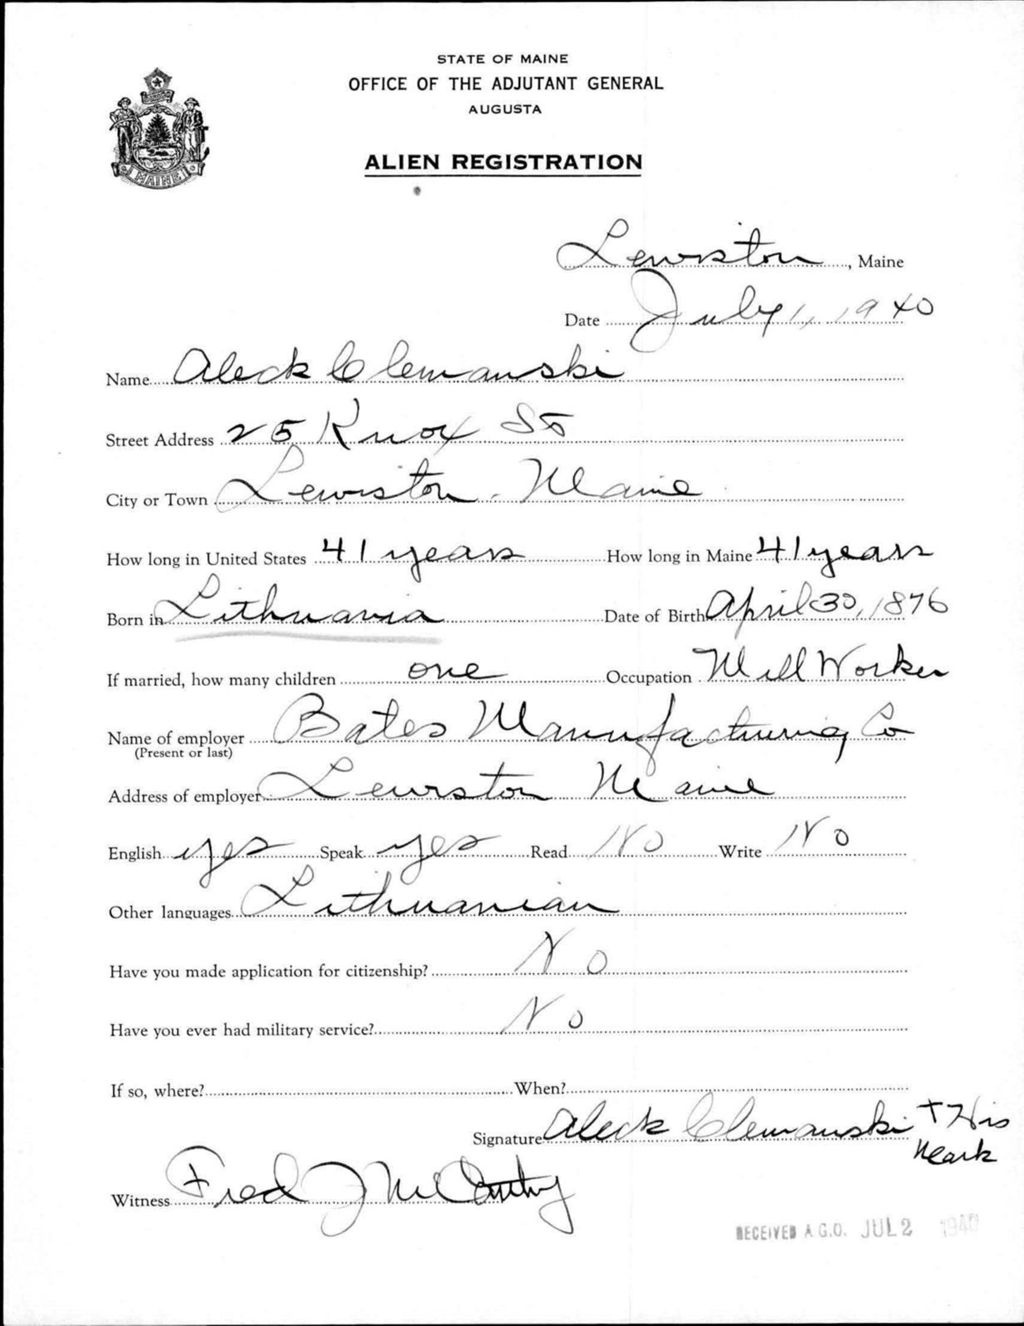 STATE OF MAINE
OFFICE OF THE ADJUTANT GENERAL
AUGUSTA
ALIEN REGISTRATION
MAINE
Lewiston, Maine
Date July 1, 1940
Name Aleck Clemanski
Street Address 25 Knox St
City or Town Lewiston, Maine
How long in United States 41 years How long in Maine 41 years
Born in Lithuania Date of Birth April 30, 1876
If married, how many children one Occupation Mill Worker
Name of employer Bates Manufacturing Co
(Present or last)
Address of employer Lewiston Maine
English yes Speak yes Read No Write No
Other languages Lithuanian
Have you made application for citizenship? No
Have you ever had military service? No
If so, where? When?
Signature Aleck Clemanski + His
Mark
Witness Fred J McCarthy
RECEIVED A.G.O. JUL 2 1940